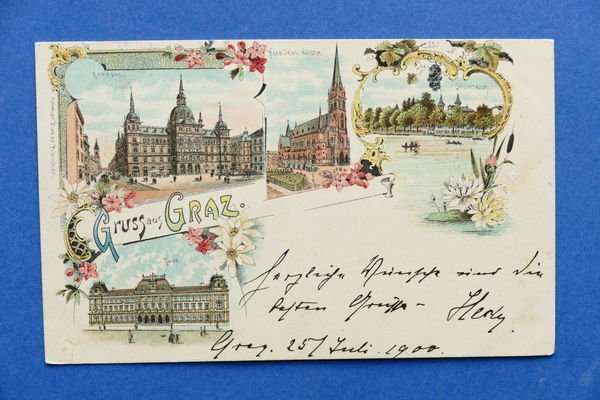 Rathhaus.
Herz Jesu Kirche
Hilmteich.
Gruss aus GRAZ.
Herzliche Wünsche und die
besten Grüsse - Hedy
Graz. 25/Juli. 1900.